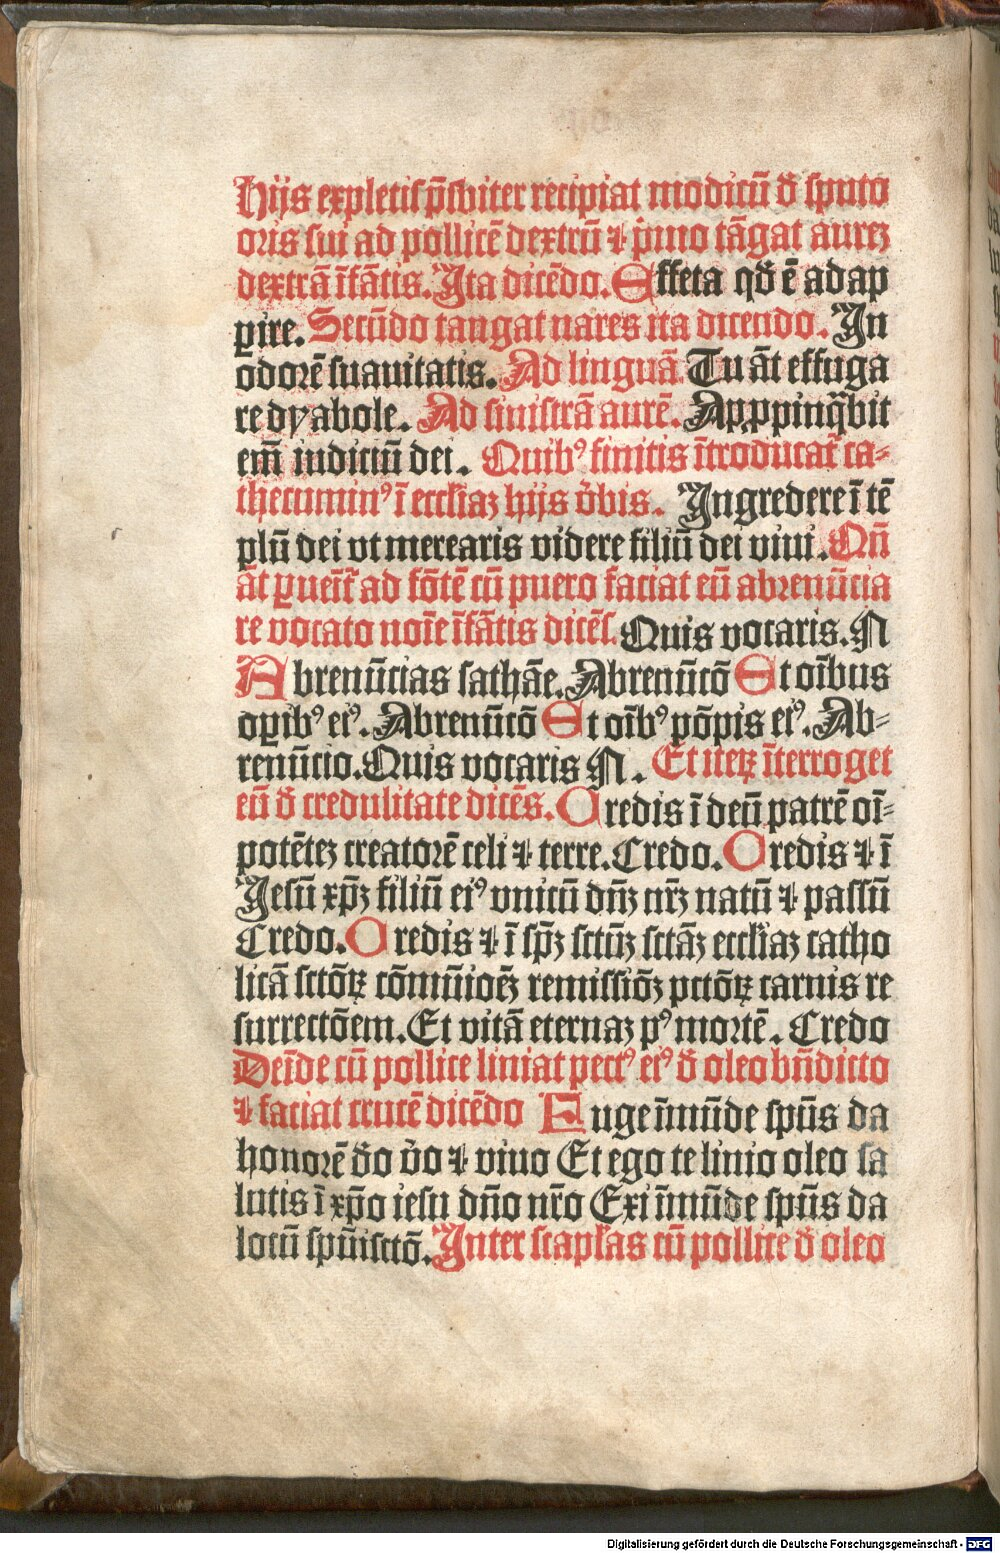 Hijs expletis p̄sbiter recipiat modicū đ sputo
oris sui ad pollicē dextrū ⁊ primo tāgat aurez
dextrā īfātis. Ita dicēdo. Effeta qđ ē adap
pire. Secūdo tangat nares ita dicendo. In
odorē suauitatis. Ad linguā Tu āt effuga
re dyabole. Ad sinistrā aurē. Appropinq̄bit
em̄ iudiciū dei. Quibꝰ finitis ītroducat̄ ca⸗
thecuminꝰ ī eccl'iaz hijs v̄bis. Ingredere ī tē
plū dei vt merearis videre filiū dei viui. Qn̄
āt puēit̄ ad fōtē cū puero faciat eū abrenūcia
re vocato noīe īfātis dicēs. Quis vocaris. N
Abrenūcias sathāe. Abrenūcō Et oībus
opibꝰ eiꝰ. Abrenūcō Et oībꝰ pōpis eiꝰ. Ab⸗
renūcio. Quis vocaris N. Et iteꝝ īterroget
eū đ credulitate dicēs. Credis ī deū patrē oī⸗
potētez creatorē celi ⁊ terre. Credo. Credis ⁊ ī
Jesū xp̄z filiū eiꝰ vnicū dn̄z nr̄z natū ⁊ passū
Credo. Credis ⁊ ī sp̄z sctūz sctāz eccl'iaz catho
licā sctōꝝ cōmūioēz remissiōz pctōꝝ carnis re
surrectōem. Et vitā eternaz pꝰ mortē. Credo
Deīde cū pollice liniat pectꝰ eiꝰ đ oleo bn̄dicto
⁊ faciat crucē dicēdo Euge īmūde sp̄us da
honorē đo v̄o ⁊ viuo Et ego te linio oleo sa
lutis ī xp̄o iesu dn̄o nr̄o Exi īmūde sp̄us da
locū sp̄uisctō. Inter scaplas cū pollice đ oleo
Digitalisierung gefördert durch die Deutsche Forschungsgemeinschaft - DFG